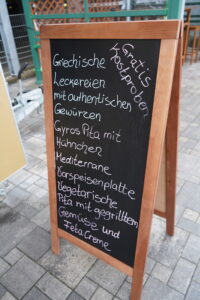 Gratis
Kostproben
Griechische
Leckereien
mit authentischen
Gewürzen
Gyros Pita mit
Hähnchen
Mediterrane
Vorspeisenplatte
Vegetarische
Pita mit gegrilltem
Gemüse und
Feta Creme